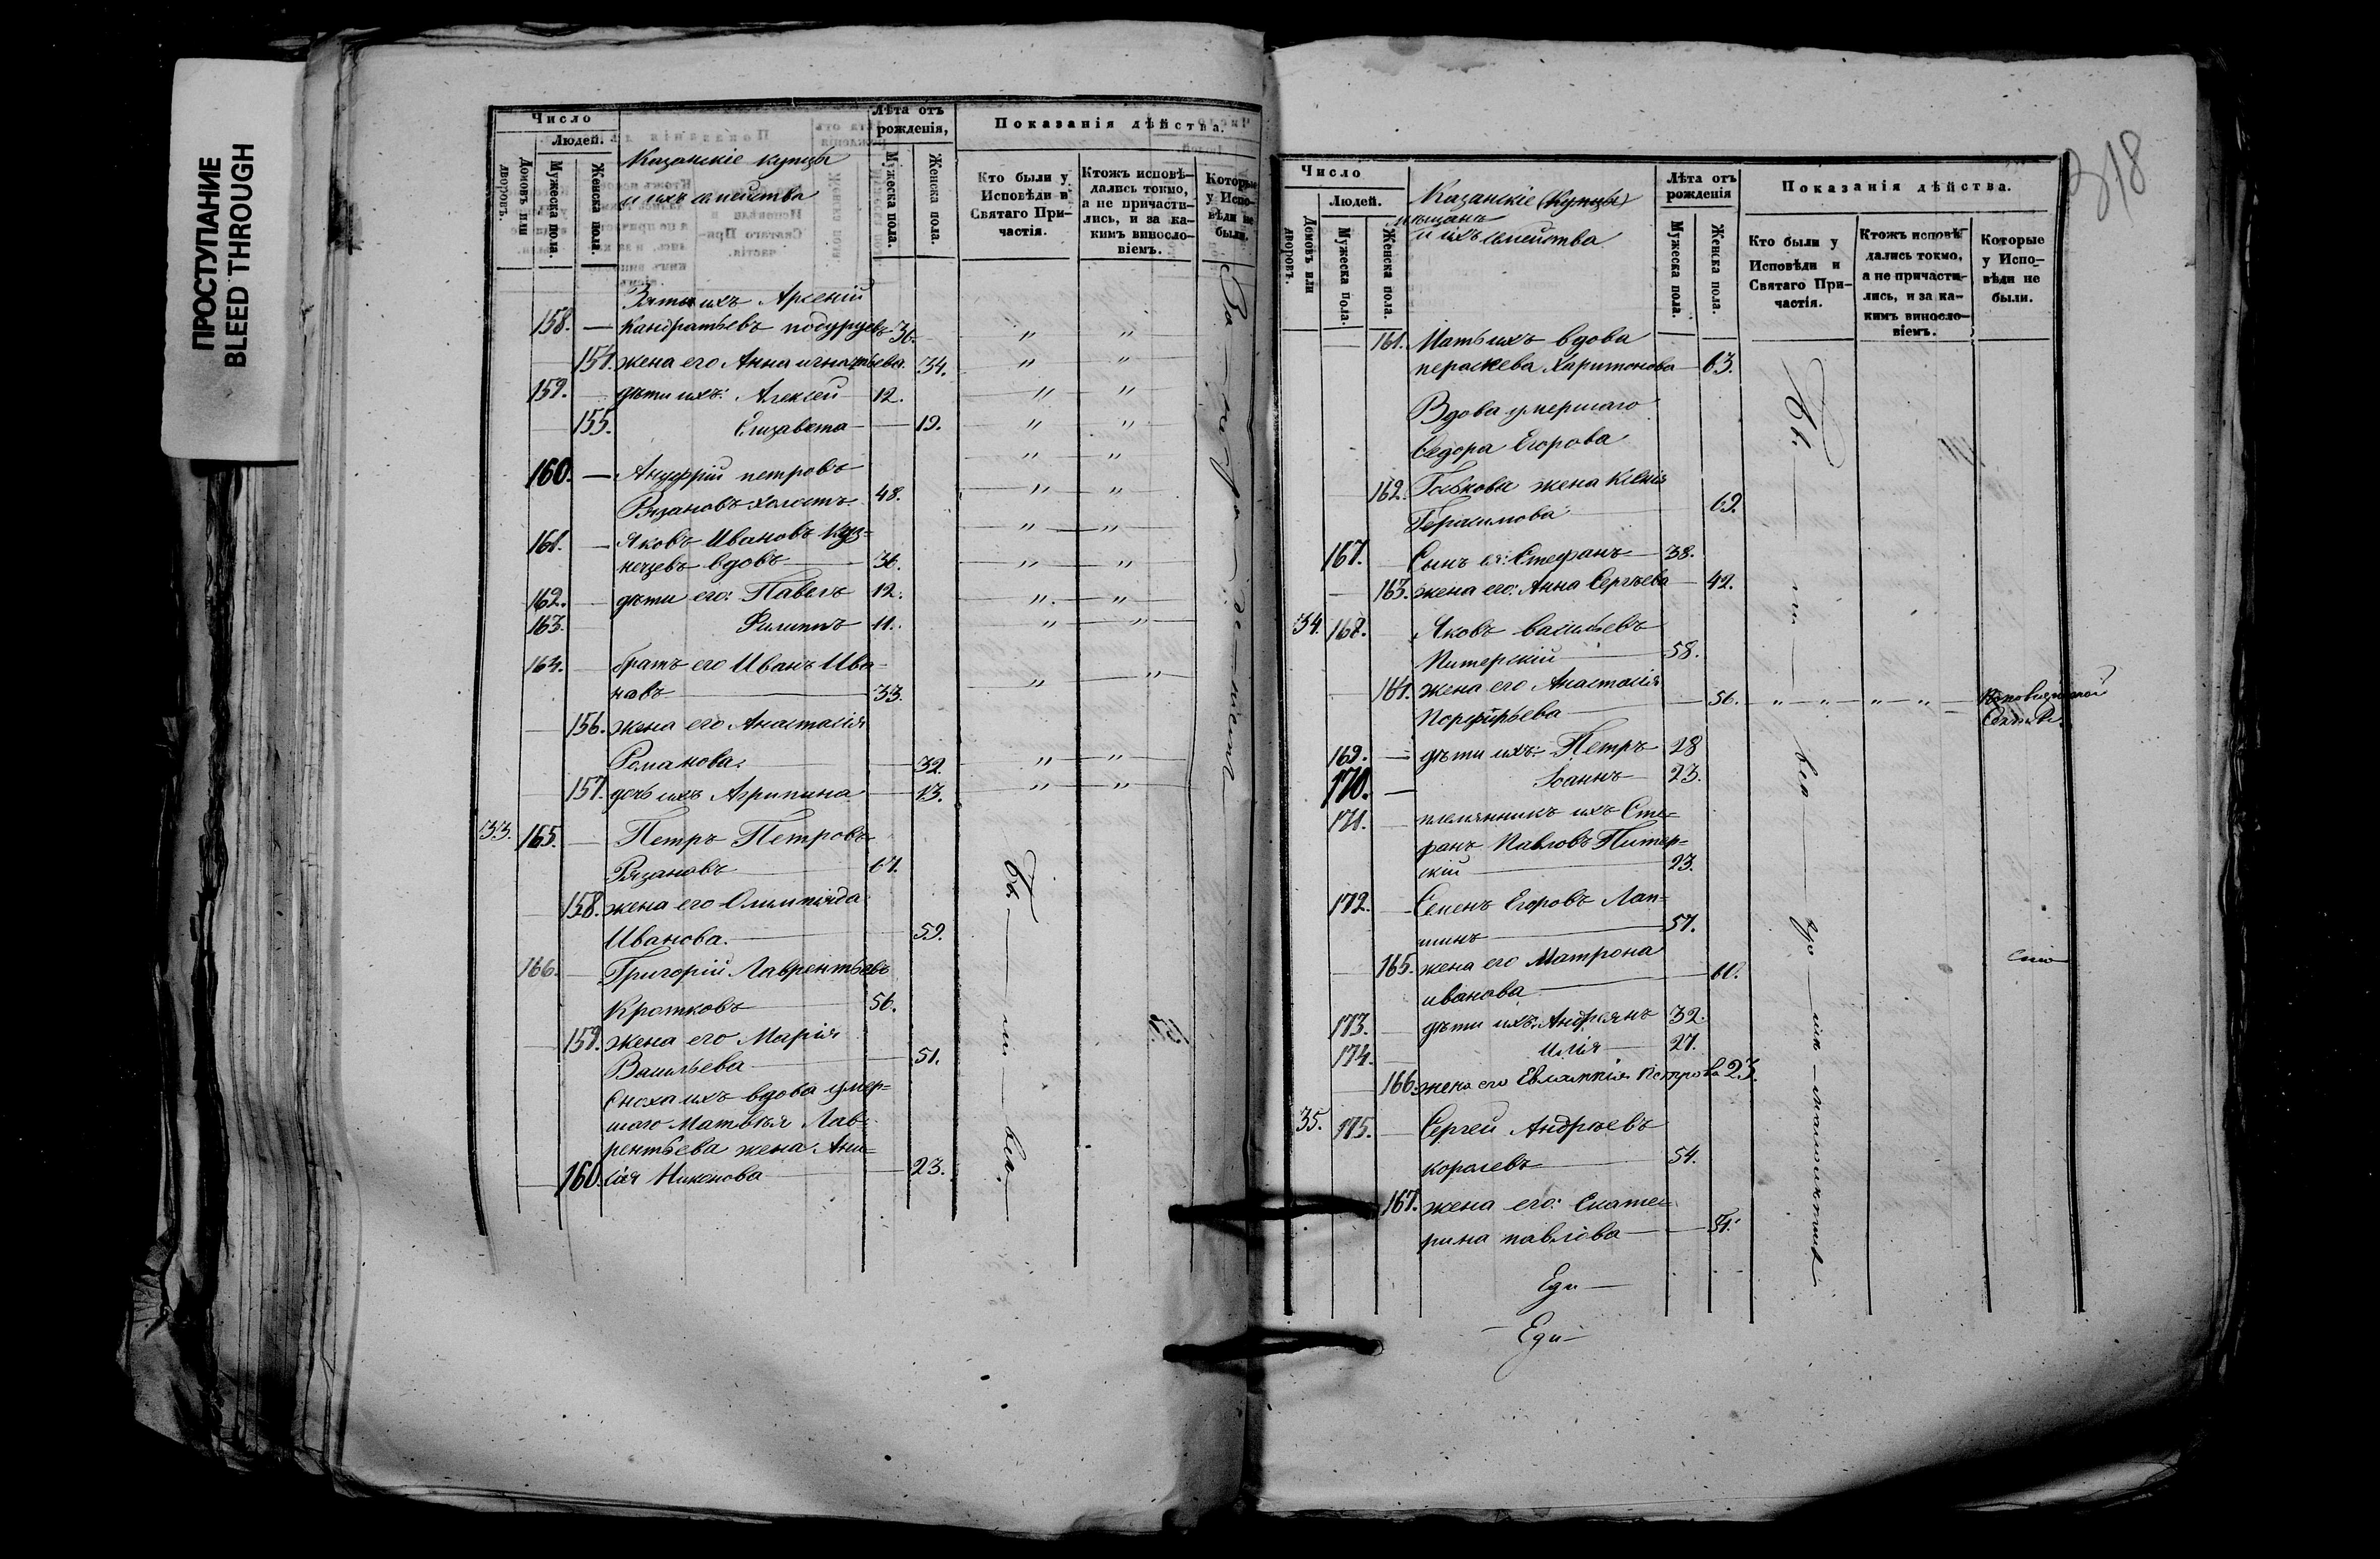 ПРОСТУПАНИЕ
BLEED THROUGH
Число
Людей.
Домовъ или дворовъ.
Мужеска пола.
Женска пола.
Казанскіе купцы
и ихъ семейства
Лѣта отъ рожденія,
Мужеска пола.
Женска пола.
Показанія дѣйства.
Кто были у Исповѣди и Святаго Причастія.
Ктожъ исповѣдались токмо, а не причастились, и за какимъ винословіемъ.
Которые у Исповѣди не были.
Зять ихъ Арсеній
158. — Кандратьевъ 36. " "
154. жена его Анна Игнатьева 34. " "
159. дѣти ихъ: Алексей 12. " "
155. Елизавета 19. " "
160. — Ануфрій петровъ " "
Рязановъ холостъ 48. " "
161. — Яковъ Ивановъ Куз- " "
нецевъ вдовъ 36. " "
162. дѣти его: Павелъ 12. " "
163. Филиппъ 11. " "
164. братъ его Иванъ Ива-
навъ 33. " "
156. жена его Анастасія
Романова. 32. " "
157. дочь ихъ Агрипина 13. " "
33. 165. Петръ Петровъ
Рязановъ 61.
158. жена его Олимпіяда
Иванова. 59.
166. Григорій Лаврентьевъ
Кротковъ 56.
159. жена его Марія
Васильева 51.
Сноха ихъ вдова умер-
шаго Матвѣя Лав-
рентьева жена Ани-
160. сія Никонова 23.
318
Число
Людей.
Домовъ или дворовъ.
Мужеска пола.
Женска пола.
Казанскіе (Купцы)
мещанъ
и ихъ семейства
Лѣта отъ рожденія
Мужеска пола.
Женска пола.
Показанія дѣйства.
Кто были у Исповѣди и Святаго Причастія.
Ктожъ исповѣдались токмо, а не причастились, и за какимъ винословіемъ.
Которые у Исповѣди не были.
161. Мать ихъ вдова
пераскева Харитонова 63.
Вдова умершаго
Седора Егорова
162. жена Ксенія
Герасимова 69.
167. Сынъ ея: Стефанъ 38.
163. жена его: Анна Сергѣева 42.
34. 168. Яковъ васильевъ
Питерскій 58.
164. жена его Анастасія
Порфирьева 56. " " " "
169. — дѣти ихъ: Петръ 28
170. — Іоаннъ 23.
171. племянникъ ихъ Сте-
фанъ Павловъ Питер-
скій 23.
172. Семенъ Егоровъ Лап-
шинъ 57.
165. жена его Матрона
иванова 60.
173. дѣти ихъ: Андреянъ 32.
174. Илія 27.
166. жена его Евлампія Петрова 23.
35. 175. Сергей Андрѣевъ
королевъ 54.
167. жена его: Екате-
рина павлова 51.
Еди
Еди